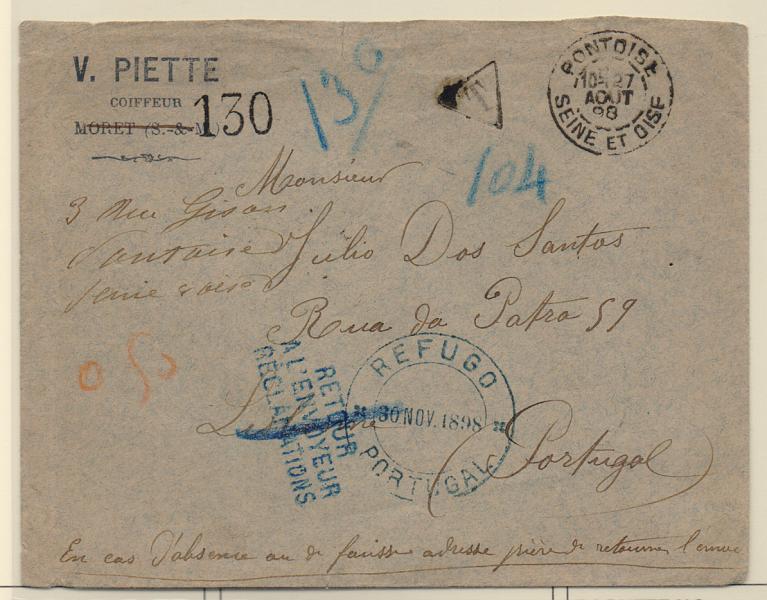 V. PIETTE
COIFFEUR
MORET (S.-&-M.)
130
130
T
PONTOISE
10E 27
AOUT
98
SEINE ET OISE
104
Monsieur
3 Rue Gison
Pontoise
Seine & Oise
Júlio Dos Santos
Rua da Patra 59
REFUGO
30 NOV. 1898
PORTUGAL
RETOUR
A L'ENVOYEUR
RÉCLAMATIONS
Lisbonne
Portugal
En cas d'absence ou de fausse adresse prière de retourner l'envoi